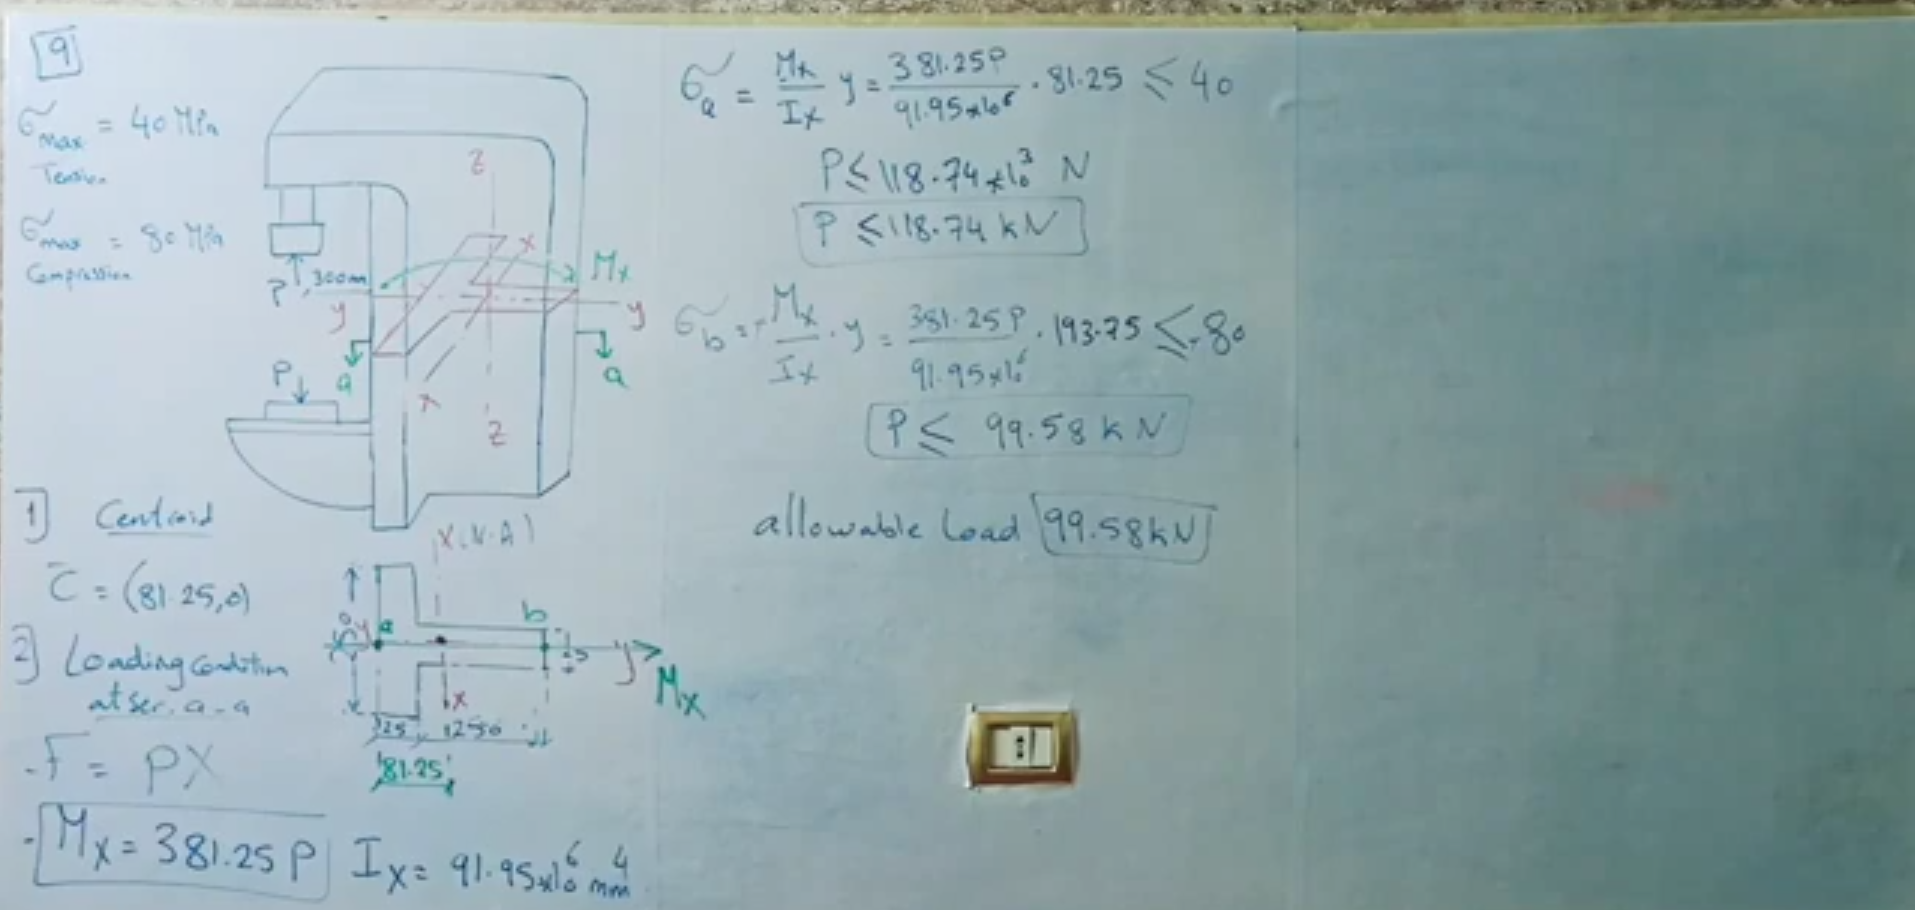 9
σmax = 40 MPa
Tension
σmax = 80 MPa
Compression
P
300mm
P
Z
X
Mx
y
y
a
a
X
Z
1] Centroid
C̄ = (81.25,0)
2] Loading Condition
at sec. a-a
- F = PX
- Mx = 381.25 P
Ix = 91.95x10⁶ mm⁴
X(N.A)
a
b
y
Mx
x
125
1250
81.25
σa = Mx/Ix y = 381.25P/91.95x10⁶ . 81.25 ≤ 40
P ≤ 118.74x10³ N
P ≤ 118.74 kN
σb = - Mx/Ix . y = 381.25P/91.95x10⁶ . 193.75 ≤ -80
P ≤ 99.58 kN
allowable Load 99.58kN